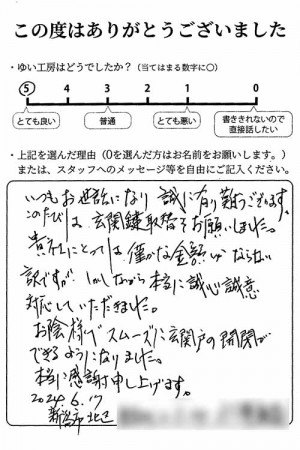 この度はありがとうございました
・ゆい工房はどうでしたか？（当てはまる数字に○）
5 4 3 2 1 0
とても良い 普通 とても悪い 書ききれないので直接話したい
・上記を選んだ理由（0を選んだ方はお名前をお願いします。）
または、スタッフへのメッセージ等を自由にご記入ください。
いつもお世話になり 誠に有り難うございます。
このたびは 玄関鍵取替をお願いしました。
貴社にとっては 僅かな金額にしかならない
訳ですが しかしながら 本当に誠心誠意
対応していただきました。
お陰様で スムーズに玄関戸の開閉が
できるようになりました。
本当に感謝申し上げます。
2024.6.17
新潟市北区